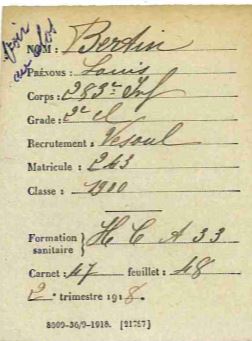 Voir au dos
NOM : Berdin
PRÉNOMS : Louis
Corps : 283e Inf
Grade : 2e cl
Recrutement : Vesoul
Matricule : 243
Classe : 1910
Formation sanitaire } H C A 33
Carnet : 47 feuillet : 48
2e trimestre 1918.
8009-36/9-1918. [21757]